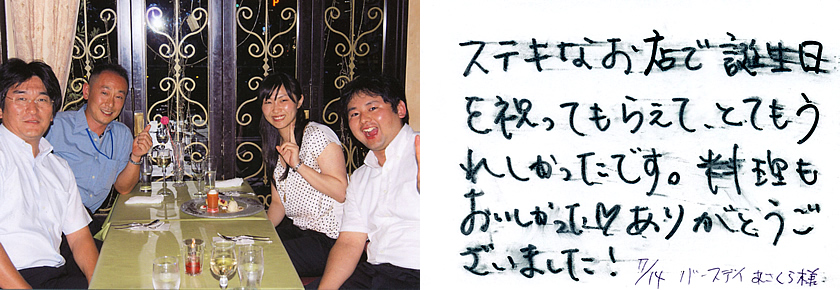 ステキなお店で誕生日
を祝ってもらえて、とてもう
れしかったです。料理も
おいしかった♡ありがとうご
ざいました!
7/14 バースデイ あさくら様